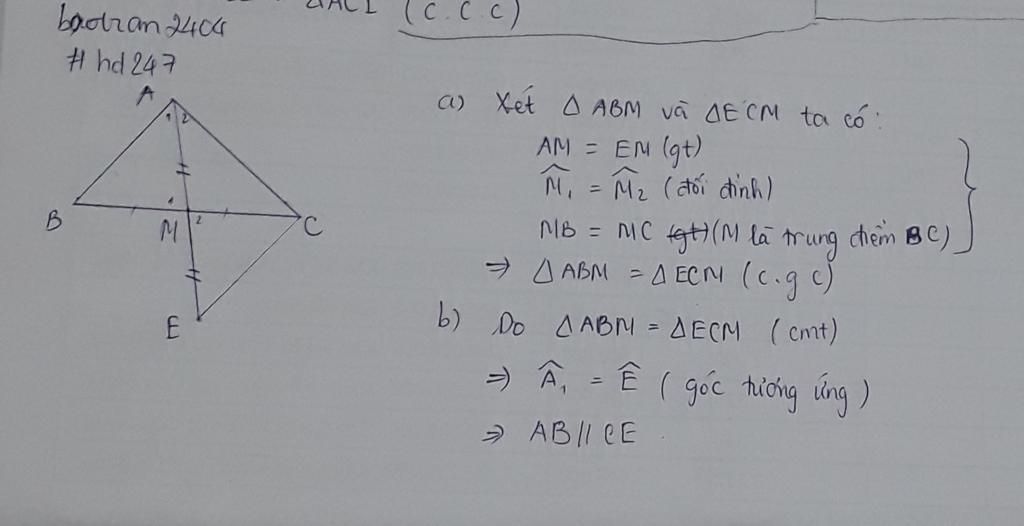 ΔACI (c.c.c)
baotran2404
# hd247
A
1 2
B
M 2
C
E
a) Xét Δ ABM và ΔECM ta có:
AM = EM (gt)
M̂₁ = M̂₂ (đối đỉnh)
MB = MC (gt) (M là trung điểm BC)
⇒ Δ ABM = Δ ECM (c.g c)
b) Do Δ ABM = Δ ECM (cmt)
⇒ Â₁ = Ê (góc tương ứng)
⇒ AB // CE